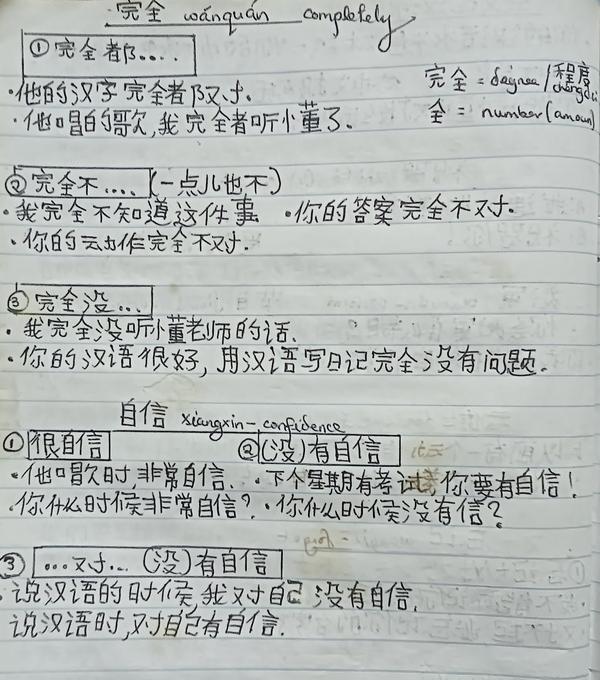 完全 wánquán completely
① 完全都....
完全 = degree / 程度 chéngdù
· 他的汉字完全都对.
全 = number (amoun)
· 他唱的歌, 我完全都听懂了.
② 完全不.... (一点儿也不)
· 我完全不知道这件事 · 你的答案完全不对.
· 你的动作完全不对.
③ 完全没...
· 我完全没听懂老师的话.
· 你的汉语很好, 用汉语写日记完全没有问题.
自信 xiangxin - confidence
① 很自信 ② (没)有自信
· 他唱歌时, 非常自信. · 下个星期有考试 你要有自信!
· 你什么时候非常自信? · 你什么时候没有信?
③ ...对... (没)有自信
· 说汉语的时候, 我对自己没有自信.
说汉语时, 对自己有自信.